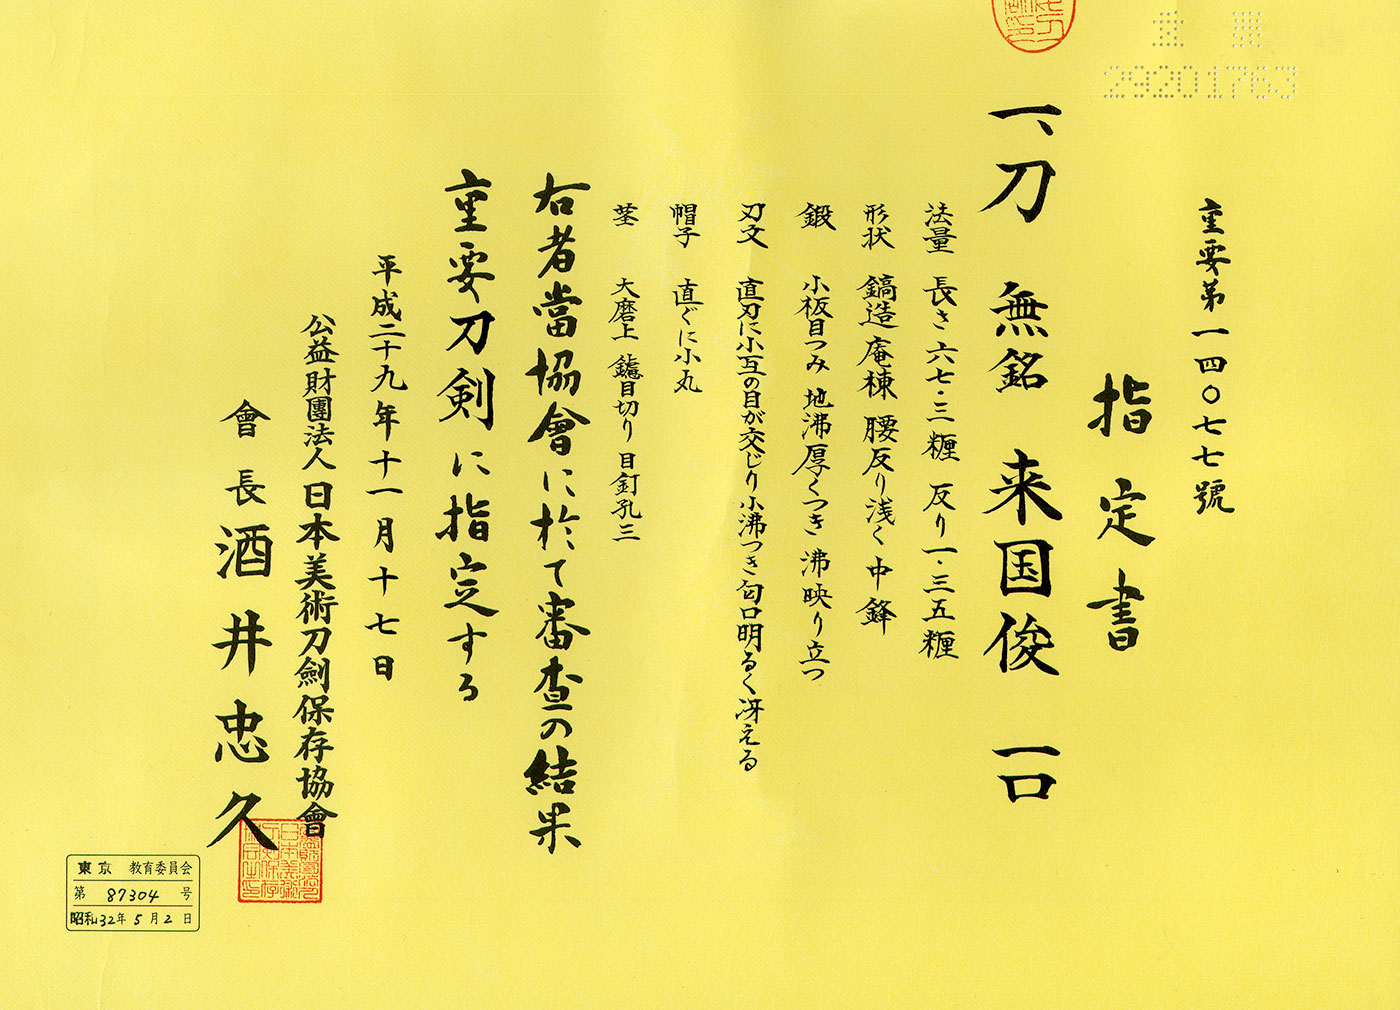 重要
29201763
重要第一四〇七七號
指定書
一、刀 無銘 来国俊 一口
法量 長さ 六七・三糎 反り 一・三五糎
形状 鎬造 庵棟 腰反り浅く 中鋒
鍛 小板目つみ 地沸厚くつき 沸映り立つ
刃文 直刃に小互の目が交じり 小沸つき 匂口明るく冴える
帽子 直ぐに小丸
茎 大磨上 鑢目切り 目釘孔三
右者當協會に於て審査の結果
重要刀剣に指定する
平成二十九年十一月十七日
公益財團法人日本美術刀劍保存協會
會長 酒井忠久
東京 教育委員会
第 87304 号
昭和32年5月2日